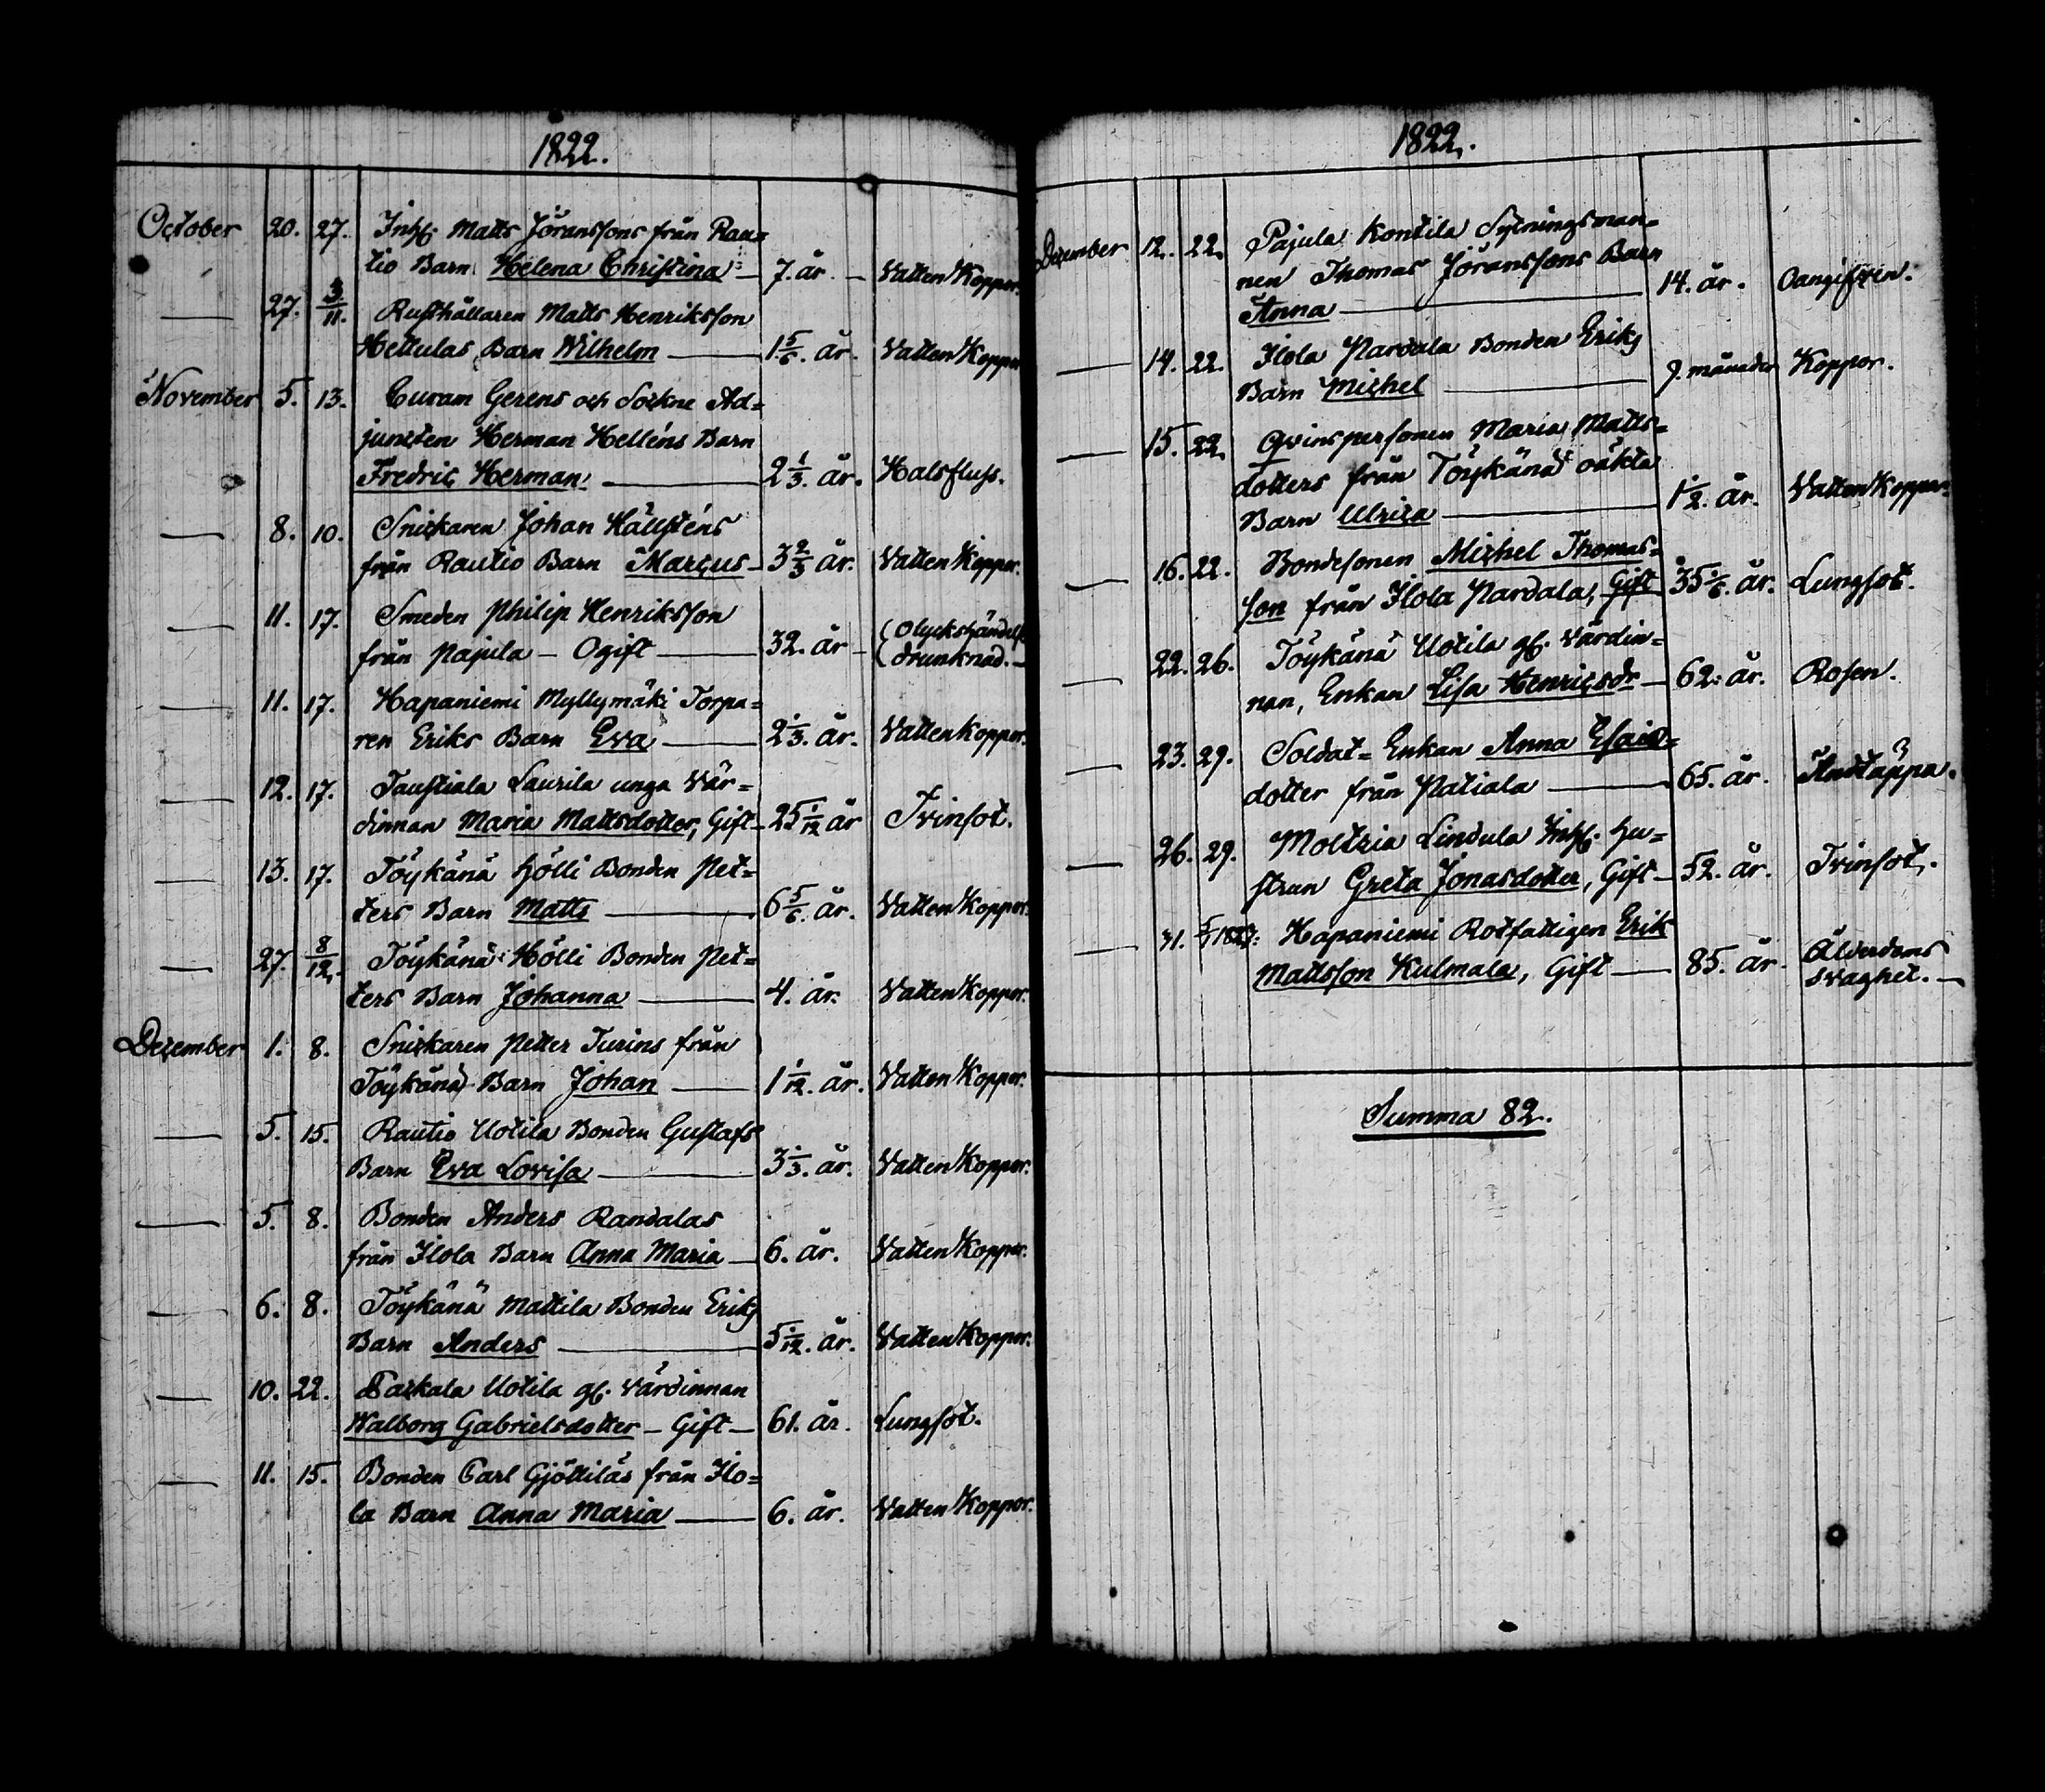 1822.
October 20. 27. Inh. Matts Jöranssons från Rau=
tio Barn Helena Christina — 7. år — Vatten Koppor.
— 27. 3/11. Rusthållaren Matts Henriksson
Hettulas Barn Wilhelm — 1 5/6. år. Vatten Koppor
November 5. 13. Curam Gerens och Sockne Ad=
juncten Herman Helléns Barn
Fredric Herman. — 2 1/3. år. Halsfluss.
— 8. 10. Snickaren Johan Hällsténs
från Rautio Barn Marcus — 3 2/3 år. Vatten Koppor.
— 11. 17. Smeden Philip Henriksson
från Pajula — Ogift — 32. år — (Olyckshändelse
(drunknad. —
— 11. 17. Hapaniemi Myllymäki Torpa=
ren Eriks Barn Eva — 2 1/3. år. Vatten Koppor.
— 12. 17. Taustiala Laurila unga Vär=
dinnan Maria Mattsdotter, Gift — 25 1/12 år Tvinsot.
— 13. 17. Töykänä Hölli Bonden Pet=
ters Barn Matts — 6 5/6. år. Vatten Koppor.
— 27. 8/12. Töykänä Hölli Bonden Pet=
ters Barn Johanna — 4. år. Vatten Koppor.
December 1. 8. Snickaren Petter Turins från
Töykänä Barn Johan — 1 1/12. år. Vatten Koppor.
— 5. 15. Rautio Uotila Bonden Gustafs
Barn Eva Lovisa — 3 1/3. år. Vatten Koppor.
— 5. 8. Bonden Anders Randalas
från Ilola Barn Anna Maria — 6. år. Vatten Koppor.
— 6. 8. Töykänä Mattila Bonden Eriks
Barn Anders — 5 1/12. år. Vatten Koppor.
— 10. 22. Uotila gl. Värdinnan
Walborg Gabrielsdotter — Gift — 61. år. Lungsot.
— 11. 15. Bonden Carl Gjöttiläs från Ilo=
la Barn Anna Maria — 6. år. Vatten Koppor.
1822.
December 12. 22. Pajula Kontila Sytningsman=
nen Thomas Jöranssons Barn
Anna — 14. år. Oangifven.
— 14. 22. Ilola Pardala Bonden Eriks
Barn Michel — 9. månader Koppor.
— 15. 22. Qvinspersonen Maria Matts=
dotters från Töykänä oäkta
Barn Ulrica — 1 1/2. år. Vatten Koppor.
— 16. 22. Bondesonen Michel Thomas=
son från Ilola Pardala, Gift 35 1/6. år. Lungsot.
— 22. 26. Töykänä Uotila gl. Värdin=
nan, Enkan Lisa Henricsdr — 62. år. Rosen.
— 23. 29. Soldat= Enkan Anna Esais=
dotter från Patiala — 65. år. Andtäppa.
— 26. 29. Moltzia Lindula Inh. Hu=
strun Greta Jonasdotter, Gift — 52. år. Tvinsot.
— 31. 1823: Hapaniemi Rotfattigen Erik
Mattsson Kulmala, Gift — 85. år. Ålderdoms
svaghet. —
Summa 82.